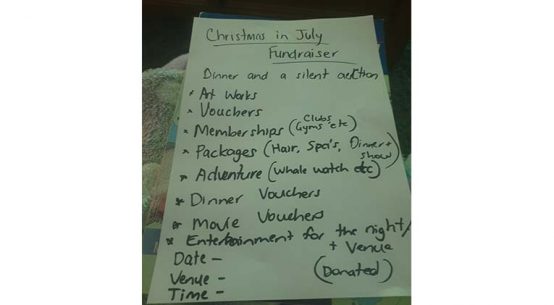 Christmas in July
Fundraiser
Dinner and a silent auction
* Art Works
* Vouchers
* Memberships (Clubs, Gyms etc)
* Packages (Hair, Spa's, Dinner + show)
* Adventure (Whale watch etc)
* Dinner Vouchers
* Movie Vouchers
* Entertainment for the night/
+ Venue
Date -
(Donated)
Venue -
Time -